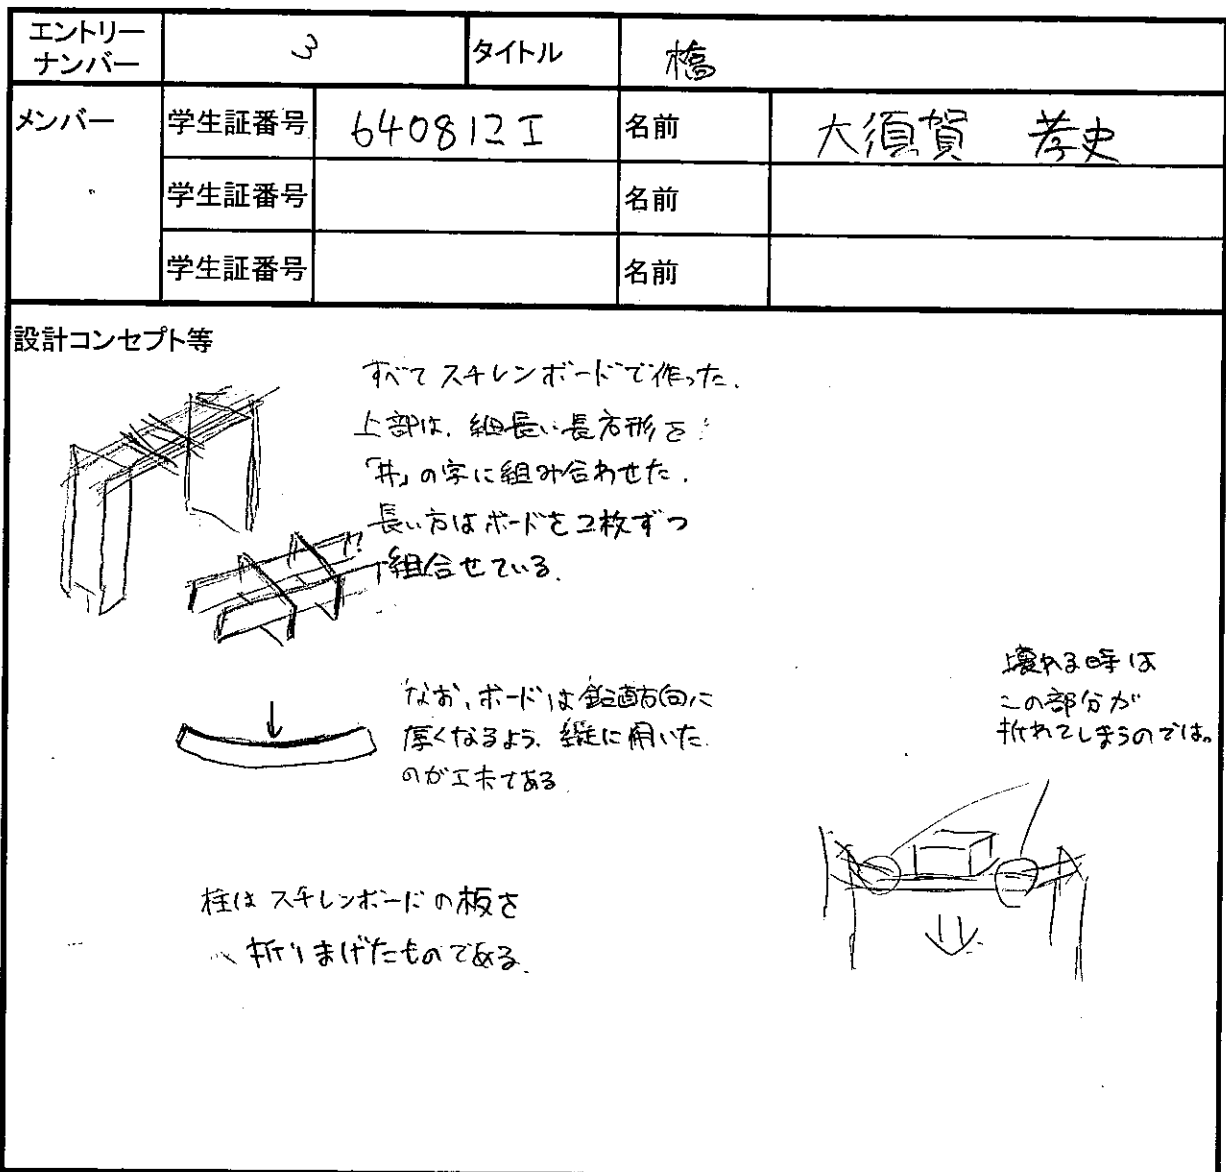 エントリー
ナンバー
3
タイトル
橋
メンバー
学生証番号
640812I
名前
大須賀 孝史
学生証番号
名前
学生証番号
名前
設計コンセプト等
すべてスチレンボードで作った.
上部は, 細長い長方形を
「井」の字に組み合わせた.
長い方はボードを2枚ずつ
組合せている.
なお, ボードは鉛直方向に
厚くなるよう, 縦に用いた
のが工夫である.
壊れる時は
この部分が
折れてしまうのでは。
柱はスチレンボードの板を
折りまげたものである.